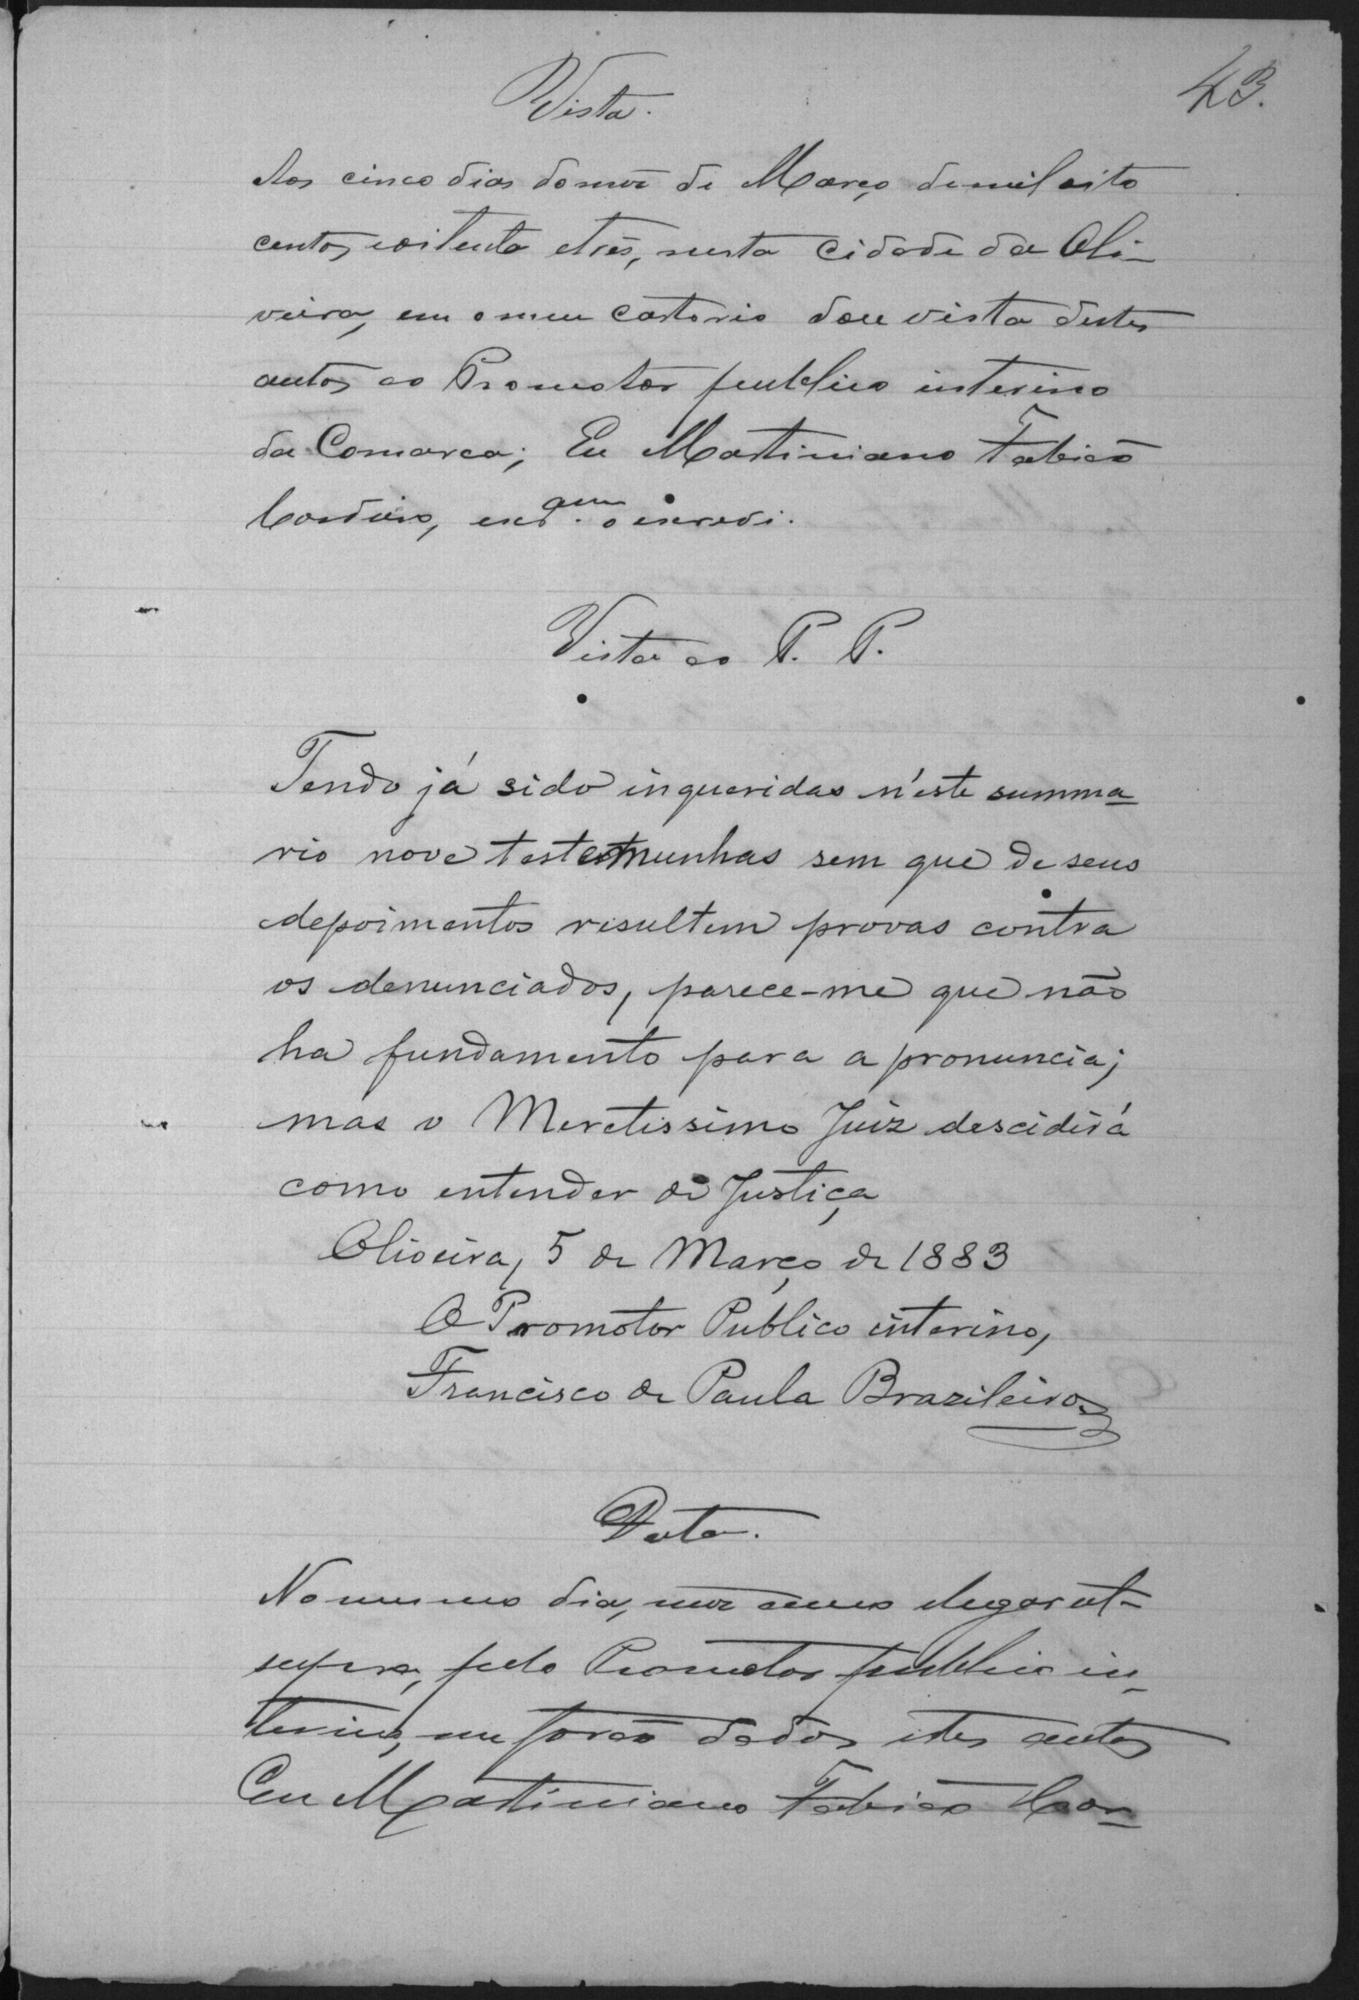 43.
Vista.
Aos cinco dias do mez de Março de mil oito
centos e oitenta e tres, nesta Cidade da Oli-
veira, em o meu cartorio dou vista destes
autos ao Promotor publico interino
da Comarca; Eu Martiniano Fabião
Cordeiro, escr. que o escrevi.
Vista ao P. P.
Tendo já sido inqueridas n'este summa-
rio nove testemunhas sem que de seus
depoimentos resultem provas contra
os denunciados, parece-me que não
ha fundamento para a pronuncia;
mas o Meretissimo Juiz descidirá
como entender de Justiça
Oliveira, 5 de Março de 1883
O Promotor Publico interino,
Francisco de Paula Brazileiro
Data.
No mesmo dia, mez anno e lugar ut-
supra, pelo Promotor publico in-
terino, me forão dados estes autos
Eu Martiniano Fabião Cor-